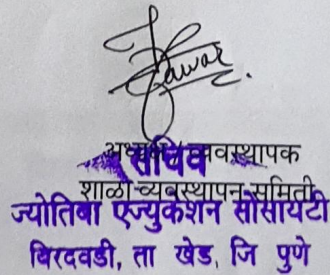 Pawar
अध्यक्ष / व्यवस्थापक
सचिव
शाळा व्यवस्थापन समिती
ज्योतिबा एज्युकेशन सोसायटी
बिरदवडी, ता खेड, जि पुणे